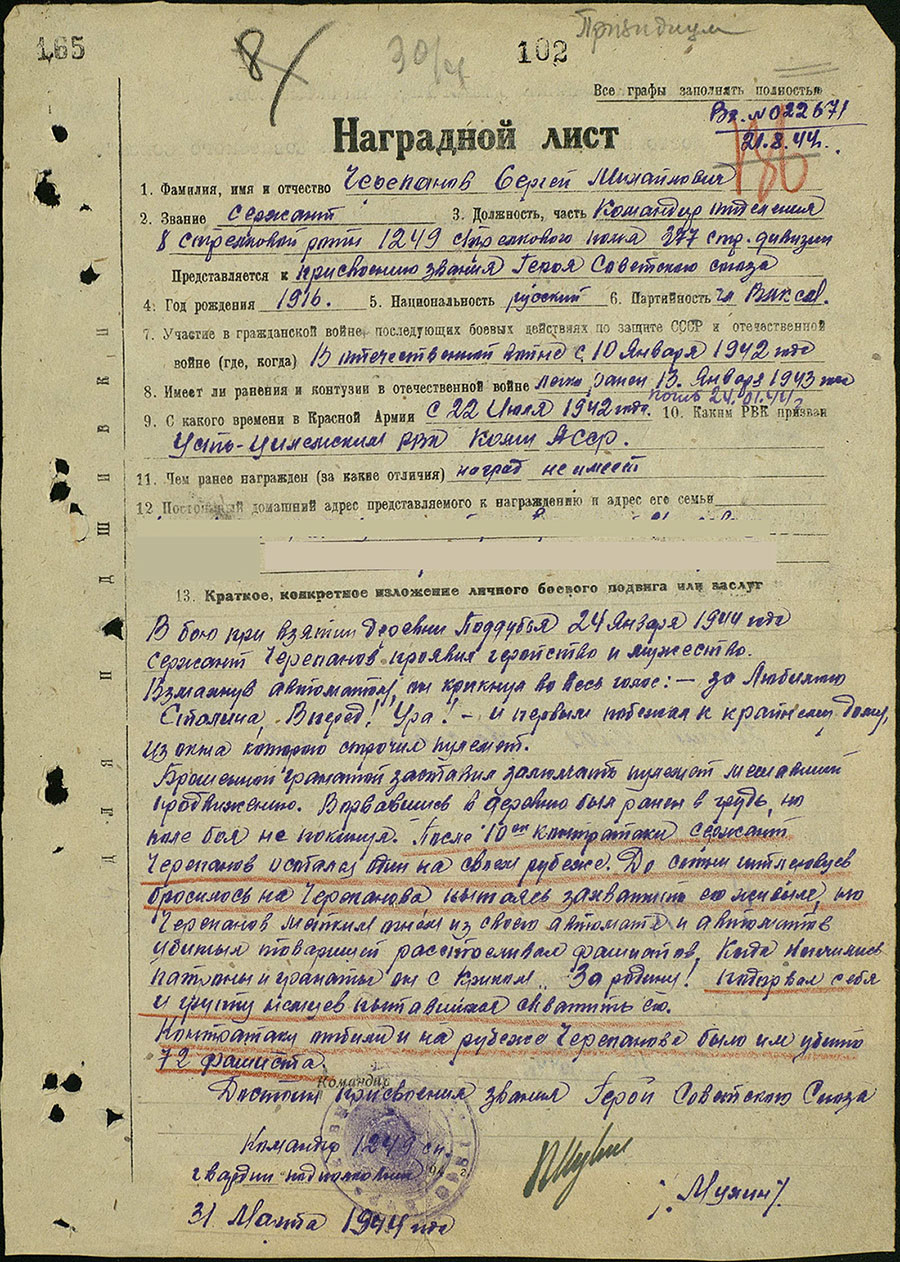 165
8
30/4
102
Президиум
Все графы заполнять полностью
Вх. №022671
21.8.44г.
Наградной лист
1. Фамилия, имя и отчество Черепанов Сергей Михайлович
2. Звание Сержант 3. Должность, часть Командир отделения
8 стрелковой роты 1249 стрелкового полка 377 стр. дивизии
Представляется к присвоению звания Героя Советского союза
4. Год рождения 1916. 5. Национальность русский 6. Партийность чл ВЛКСМ.
7. Участие в гражданской войне, последующих боевых действиях по защите СССР и отечественной
войне (где, когда) В отечественной войне с 10 Января 1942 года
8. Имеет ли ранения и контузии в отечественной войне легко ранен 13. Января 1943 года
погиб 24.01.44г
9. С какого времени в Красной Армии с 22 Июля 1942 года. 10. Каким РВК призван
Усть-Цилемским РВК Коми АССР.
11. Чем ранее награжден (за какие отличия) наград не имеет
12 Постоянный домашний адрес представляемого к награждению и адрес его семьи
13. Краткое, конкретное изложение личного боевого подвига или заслуг
В бою при взятии деревни Поддубья 24 Января 1944 года
сержант Черепанов проявил геройство и мужество.
Взмахнув автоматом, он крикнул во весь голос: – за Любимого
Сталина, Вперед! Ура! – и первым побежал к крайнему дому,
из окна которого строчил пулемет.
Брошенной гранатой заставил замолчать пулемет мешавший
продвижению. Ворвавшись в деревню был ранен в грудь, но
поле боя не покинул. После 10ой контратаки сержант
Черепанов остался один на своем рубеже. До сотни гитлеровцев
бросилось на Черепанова пытаясь захватить его живым, но
Черепанов метким огнем из своего автомата и автоматов
убитых товарищей расстреливал фашистов. Когда кончились
патроны и гранаты он с криком „За родину! подорвал себя
и группу немцев пытавшихся схватить его.
Контратаки отбили и на рубеже Черепанова было им убито
72 фашиста.
Командир
Достоин присвоения звания Герой Советского Союза
Командир 1249 сп.
гвардии подполковник
/Мухин/
31 Марта 1944 года
ДЛЯ ПОДШИВКИ